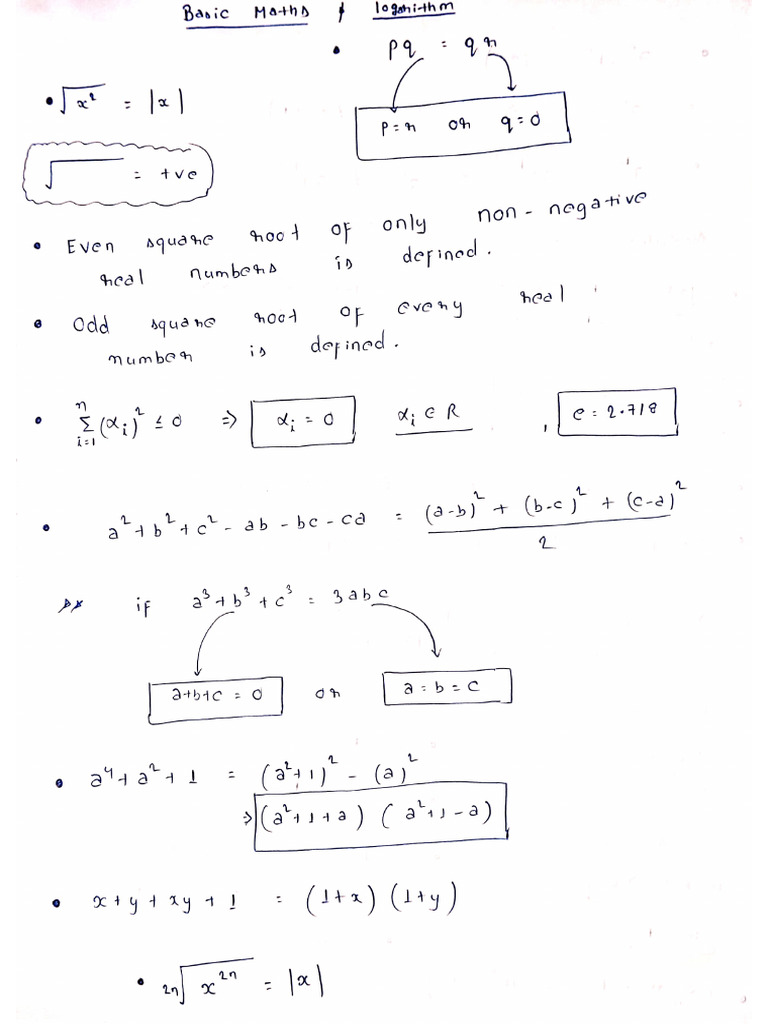 Basic Maths & logarithm
• pq = qr
p=r or q=0
• √x² = |x|
√ = +ve
• Even square root of only non-negative
real numbers is defined.
• Odd square root of every real
number is defined.
• n∑i=1 (αi)² ≤ 0 ⇒ αi = 0 αi ∈ R , e = 2.718
• a² + b² + c² - ab - bc - ca = ((a-b)² + (b-c)² + (c-a)²)/2
** if a³ + b³ + c³ = 3abc
a+b+c = 0 or a = b = c
• a⁴ + a² + 1 = (a²+1)² - (a)²
⇒ (a²+1+a) (a²+1-a)
• x + y + xy + 1 = (1+x) (1+y)
• 2n√x²ⁿ = |x|